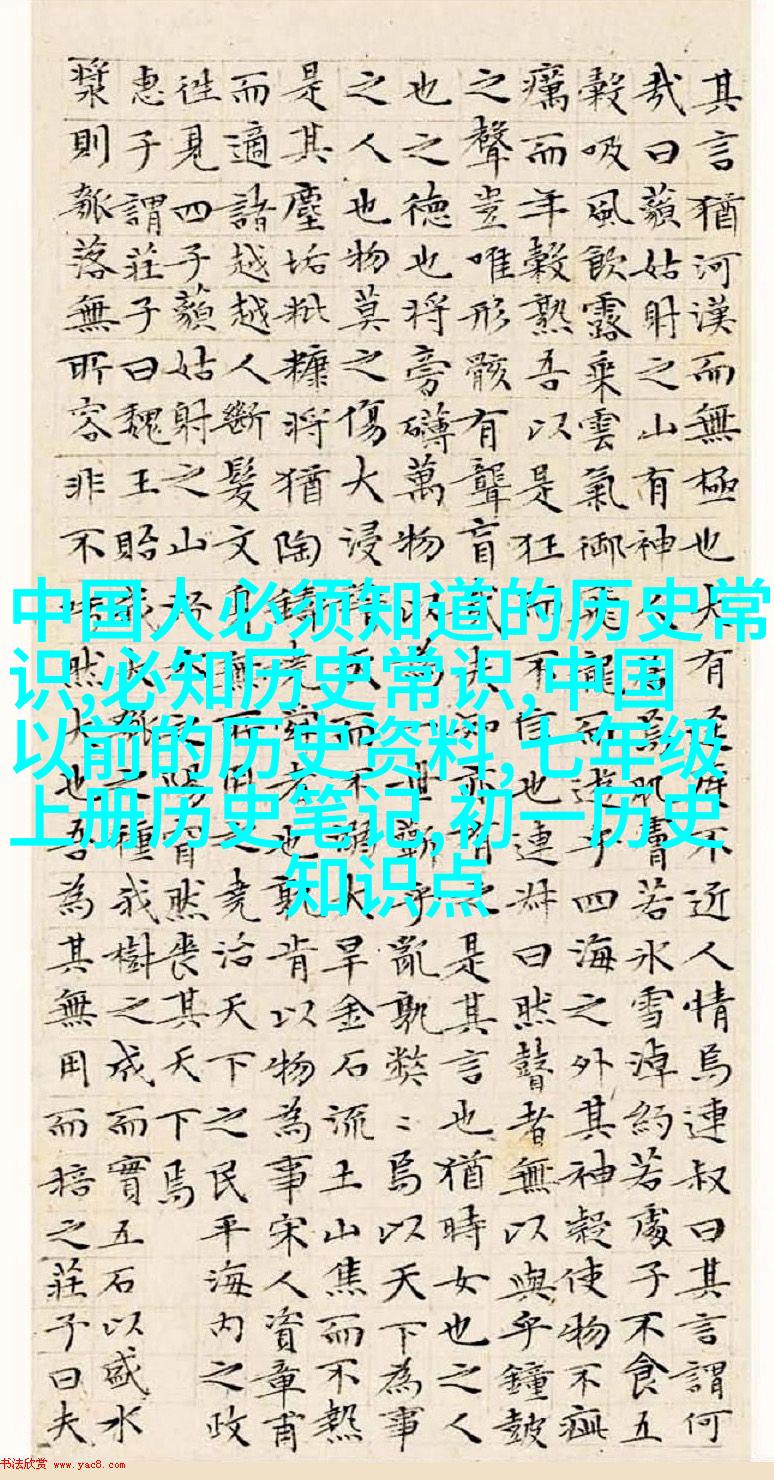 其言猶河漢而無極也大有逕庭不近人情焉連叔曰其言謂何
哉曰藐姑射之山有神人居焉肌膚若冰雪淖約若處子不食五
穀吸風飲露乘雲氣御飛龍而遊乎四海之外其神凝使物不疵
癘而年穀熟吾以是狂而不信也連叔曰然瞽者無以與乎鐘鼓
之聲豈唯形骸有聾盲哉夫知亦有之是其言也猶時女也之人
也之德也將旁礴萬物以為一世蘄乎亂孰弊〻焉以天下為事
之人也物莫之傷大浸稽天而不溺大旱金石流土山焦而不熱
是其塵垢粃糠將猶陶鑄堯舜者也孰肯以物為事宋人資章甫
而適諸越越人斷髮文身無所用之堯治天下之民平海内之政
往見四子藐姑射之山汾水之陽窅然喪其天下焉
惠子謂莊子曰魏王貽我大瓠之種我樹之成而實五石以盛水
漿則瓠落無所容非不呺然大也吾為其無用而掊之莊子曰夫
中国人必须知道的历史常
识,必知历史常识,中国
以前的历史资料,七年级
上册历史笔记,初一历史
知识点
书法欣赏 www.yac8.com